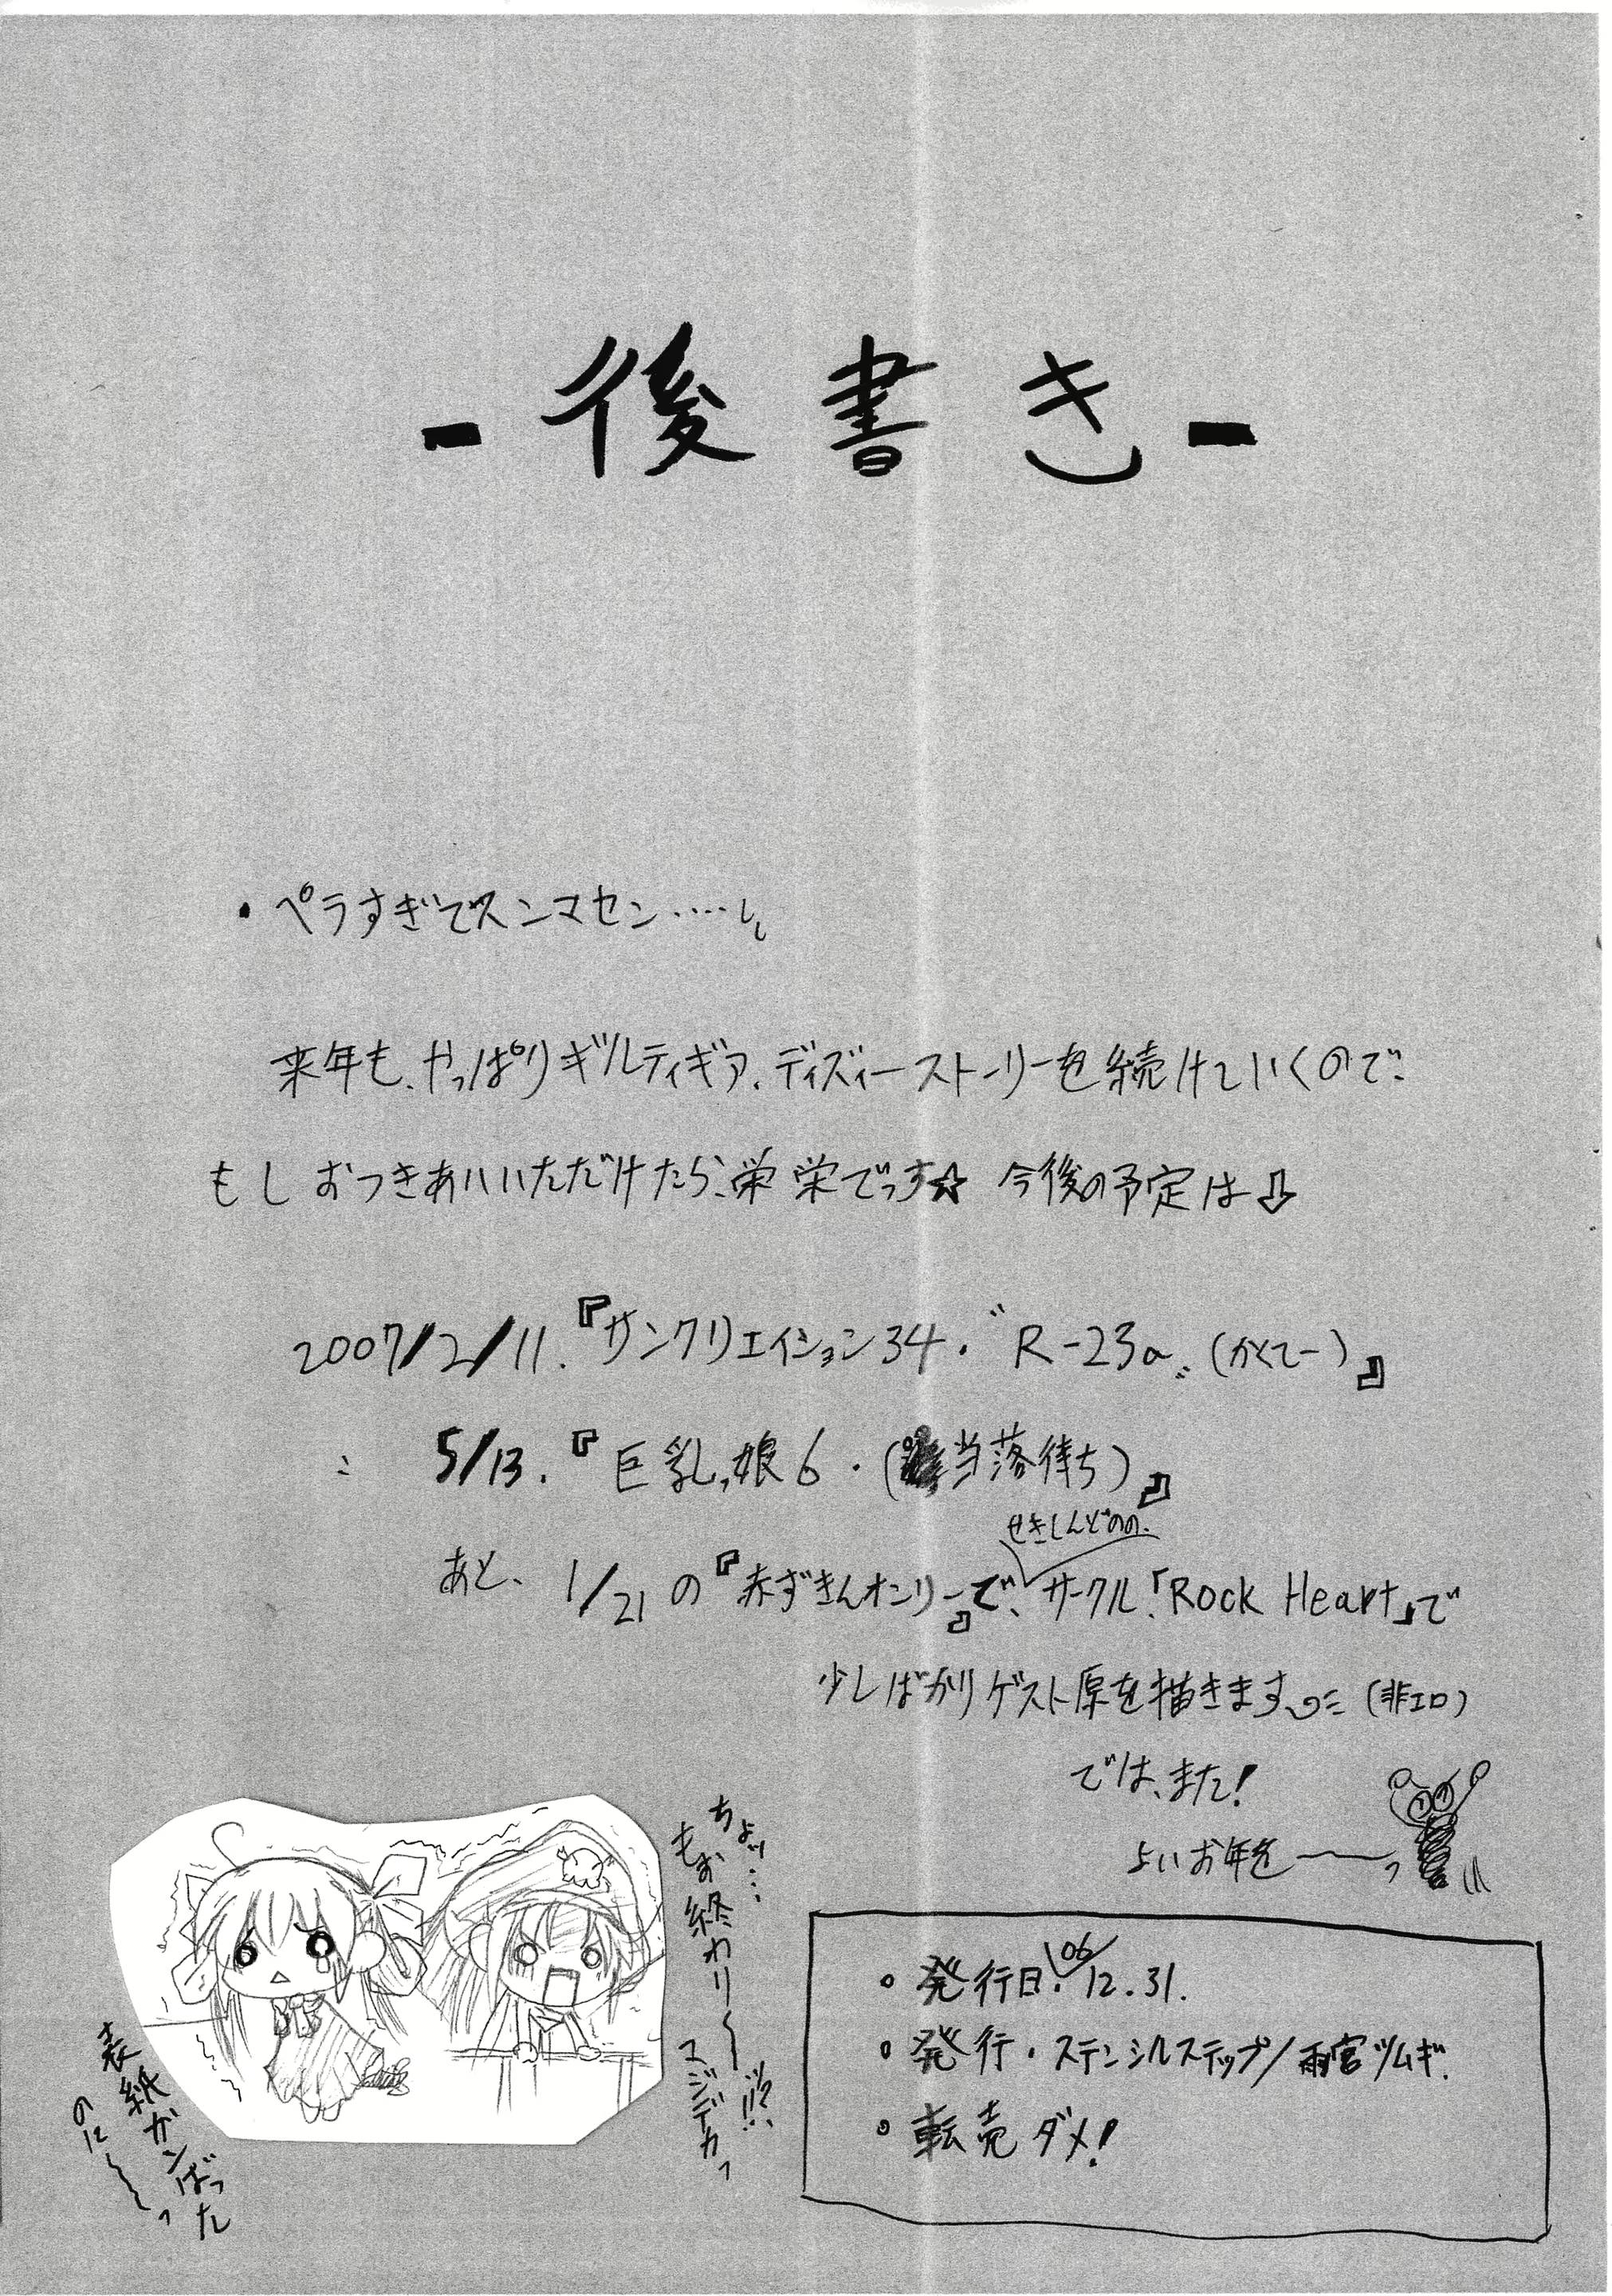 -後書き-
・ペラすぎでスンマセン‥‥
来年も、やっぱりギルティギア、ディズィーストーリーを続けていくので、
もしおつきあいいただけたら、栄栄でっす☆ 今後の予定は⇩
2007/2/11.『サンクリエイション34・〝R-23a〟(かくてー)』
〃 5/13.『巨乳っ娘6・(当落待ち)』
せきしんどのの
あと、1/21の『赤ずきんオンリー』で、サークル「Rock Heart」で
少しばかりゲスト原を描きます (非エロ)
では、また!
よいお年を――っ
ちょッ…
もお終わり〜〜ッ!!?
マジデカっ
表紙ガンばった
のに〜〜っ
• 発行日.'06 12.31.
• 発行・ステンシルステップ/雨宮ツムギ.
• 転売ダメ!